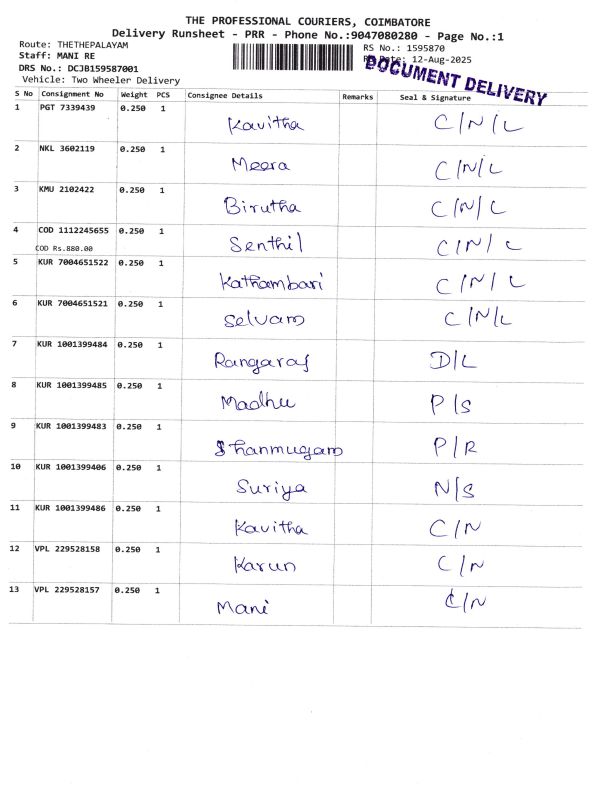 THE PROFESSIONAL COURIERS, COIMBATORE
Delivery Runsheet - PRR - Phone No.:9047080280 - Page No.:1
Route: THETHEPALAYAM
Staff: MANI RE
DRS No.: DCJB159587001
Vehicle: Two Wheeler Delivery
RS No.: 1595870
Date: 12-Aug-2025
DOCUMENT DELIVERY
S No Consignment No Weight PCS Consignee Details Remarks Seal & Signature
1 PGT 7339439 0.250 1 Kavitha C/N/L
2 NKL 3602119 0.250 1 Meera C/N/L
3 KMU 2102422 0.250 1 Birutha C/N/L
4 COD 1112245655 0.250 1 Senthil C/N/L
COD Rs.880.00
5 KUR 7004651522 0.250 1 Kathambari C/N/L
6 KUR 7004651521 0.250 1 Selvam C/N/L
7 KUR 1001399484 0.250 1 Rangaraj D/L
8 KUR 1001399485 0.250 1 Madhu P/S
9 KUR 1001399483 0.250 1 Shanmugam P/R
10 KUR 1001399406 0.250 1 Suriya N/S
11 KUR 1001399486 0.250 1 Kavitha C/N
12 VPL 229528158 0.250 1 Karun C/N
13 VPL 229528157 0.250 1 Mani C/N